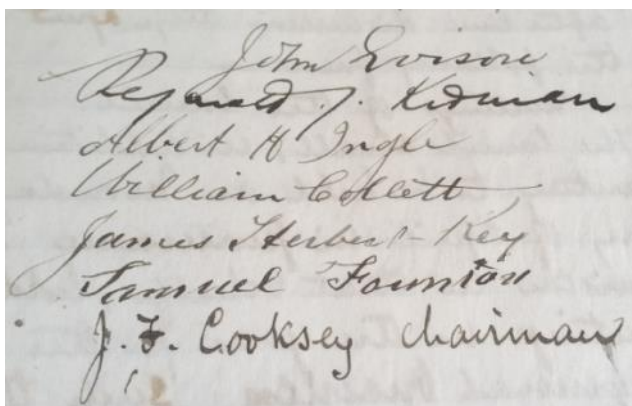 John Evison
Reginald J. Kidman
Albert H Ingle
William Collett
James Herbert Key
Samuel Founton
J. F. Cooksey Chairman